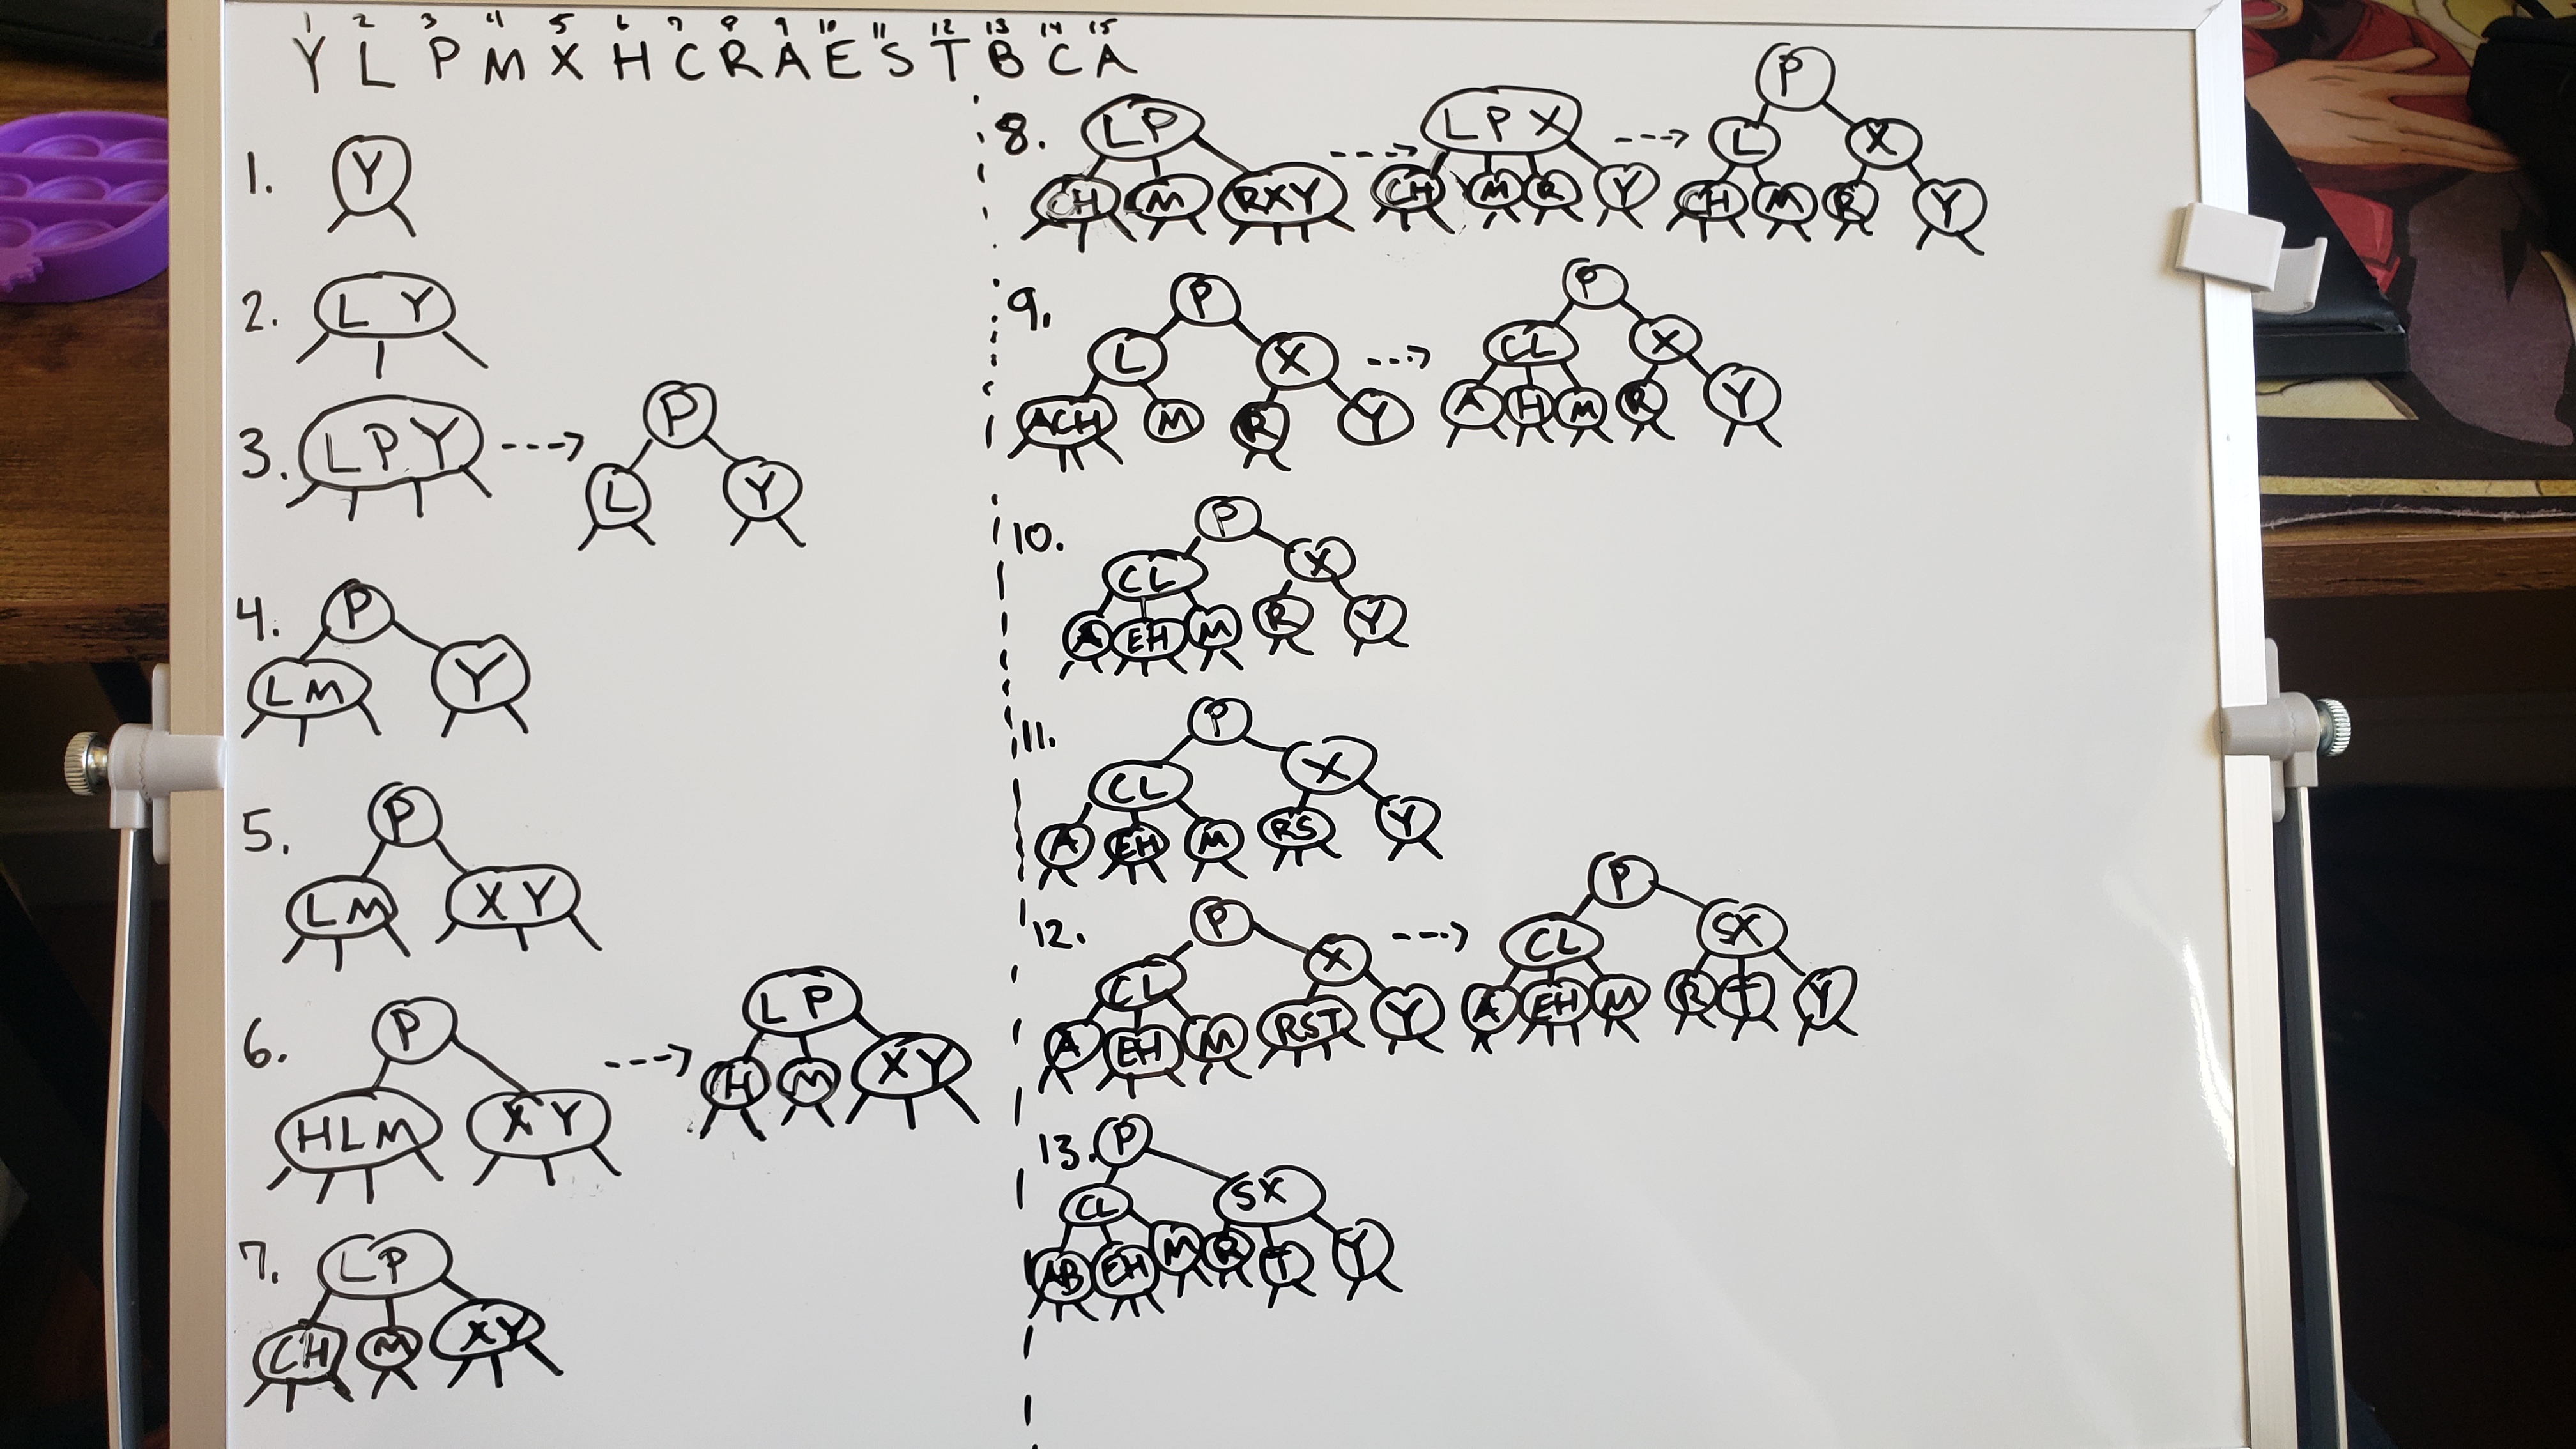 1 2 3 4 5 6 7 8 9 10 11 12 13 14 15
Y L P M X H C R A E S T B C A
1. Y
2. L Y
3. L P Y ---> P
L Y
4. P
L M Y
5. P
L M X Y
6. P ---> L P
H L M X Y H M X Y
7. L P
C H M X Y
8. L P ---> L P X ---> P
L X
CH M RXY CH M R Y CH M R Y
9. P ---> P
L X CL X
ACH M R Y A H M R Y
10. P
CL X
A EH M R Y
11. P
CL X
A EH M RS Y
12. P ---> P
CL X CL SX
A EH M RST Y A EH M R T Y
13. P
CL SX
AB EH M R T Y